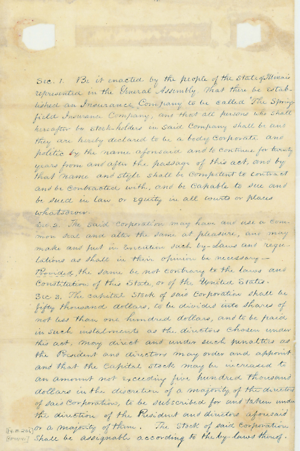 Sec. 1. Be it enacted by the people of the State of Illinois
represented in the General Assembly. That there be estab-
lished an Insurance Company to be called The Spring
field Insurance Company, and that all persons who shall
hereafter be stockholders in said Company shall be and
they are hereby declared to be a body corporate and
politic by the name aforesaid and to continue for twenty
years from and after the passage of this act and by
that name and style shall be competent to contract
and be contracted with, and be capable to sue and
be sued in law or equity in all courts or places
whatsoever.
Sec 2. The said corporation may have and use a com-
mon seal and alter the same at pleasure, and may
make and put in execution such by-laws and regu-
lations as shall in their opinion be necessary —
Provided the same be not contrary to the laws and
Constitution of this State, or of the United States.
Sec 3. The capital Stock of said Corporation shall be
fifty thousand dollars, to be divided into shares of
not less than one hundred dollars, and to be paid
in such instalments as the directors chosen under
this act, may direct and under such penalties as
the President and directors may order and appoint
and that the Capital Stock may be increased to
an amount not exceeding five hundred thousand
dollars in the discretion of a majority of the directors
of said Corporation, to be subscribed for and taken under
the direction of the President and directors aforesaid
or a majority of them. The Stock of said Corporation
shall be assignable according to the by-laws thereof.